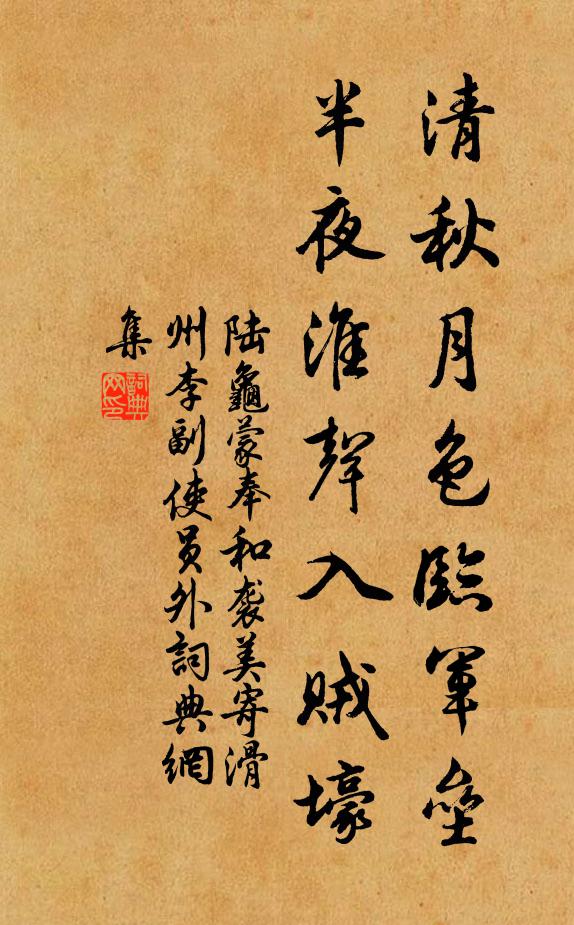 清秋月色臨軍壘
半夜淮聲入賊壕
陆龜蒙奉和袭美寄滑
州李副使員外詞典網
集
詞典
网印